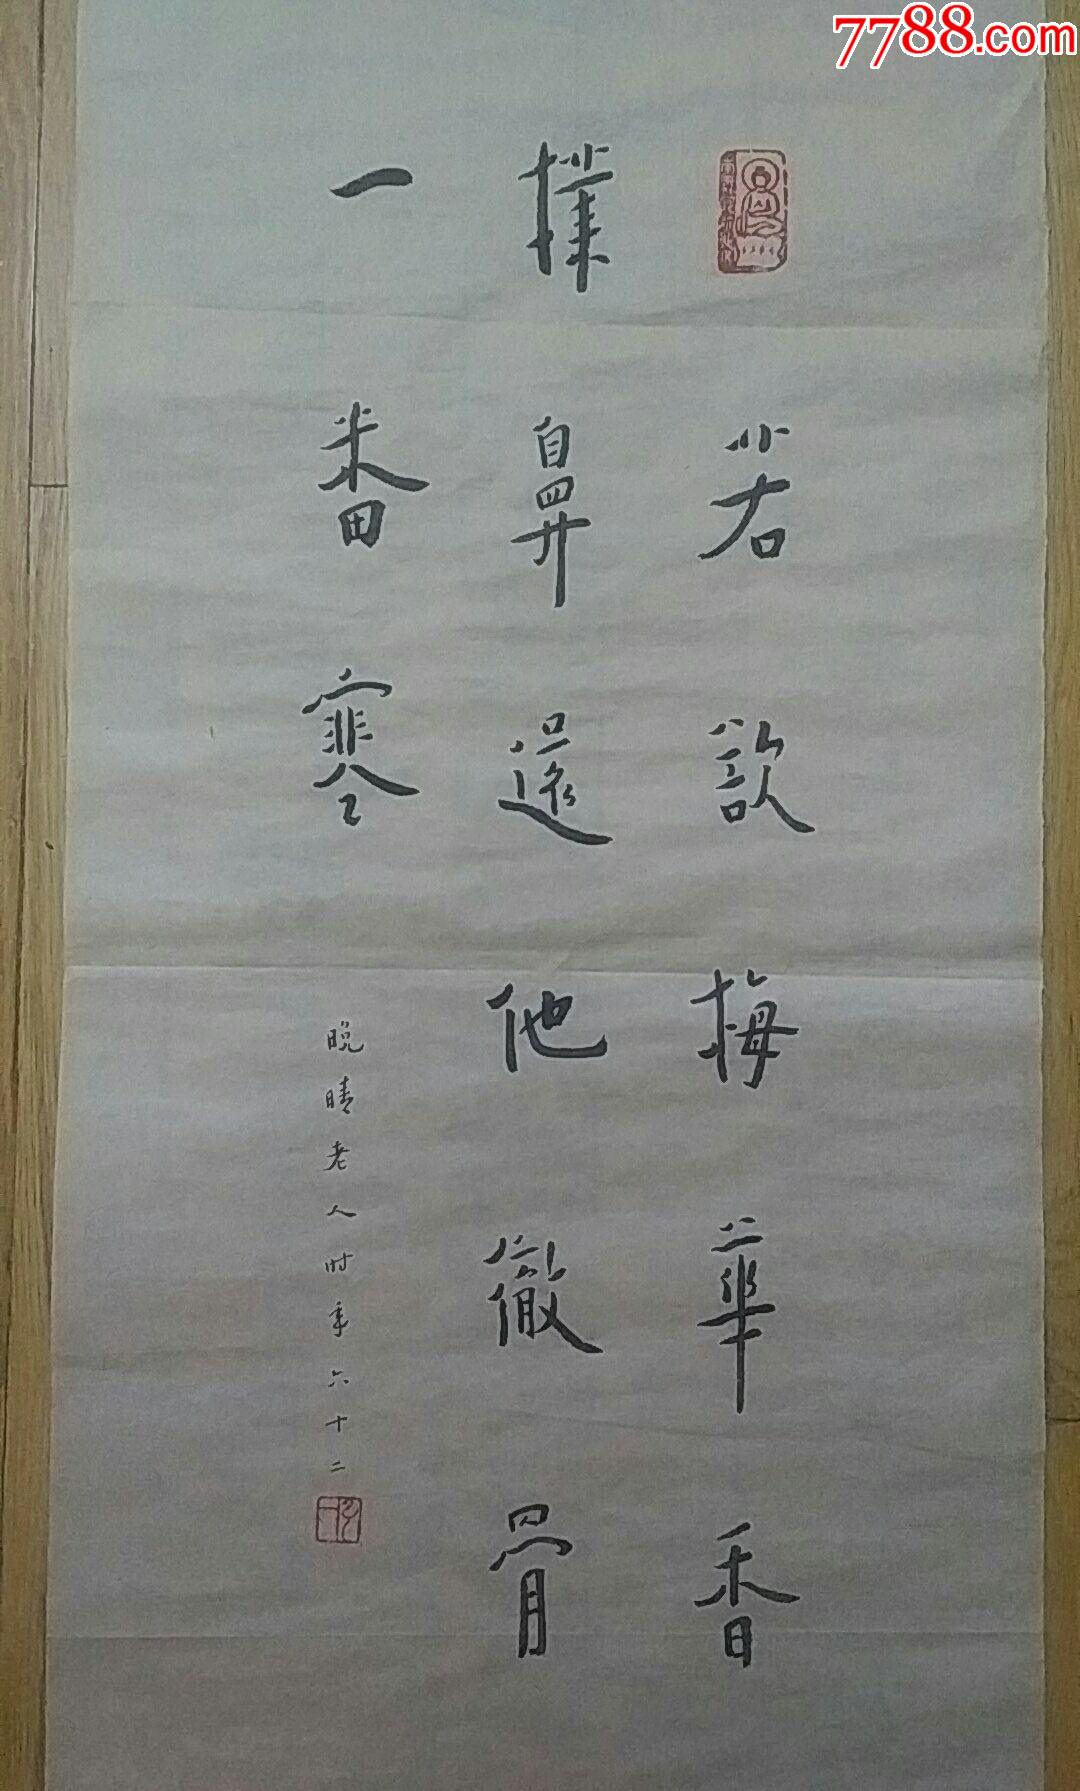 7788.com
若欲梅華香
撲鼻還他徹骨
一番寒
晚晴老人时年六十二